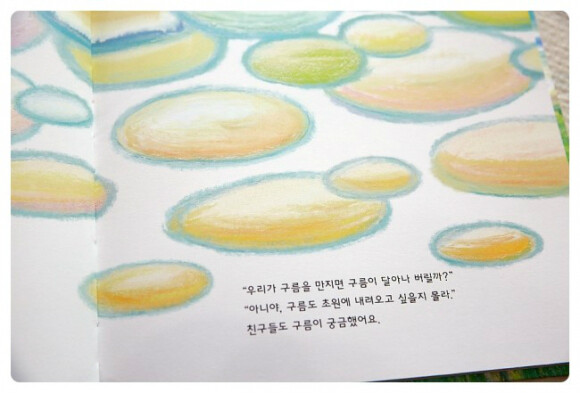 "우리가 구름을 만지면 구름이 달아나 버릴까?"
"아니야, 구름도 초원에 내려오고 싶을지 몰라."
친구들도 구름이 궁금했어요.